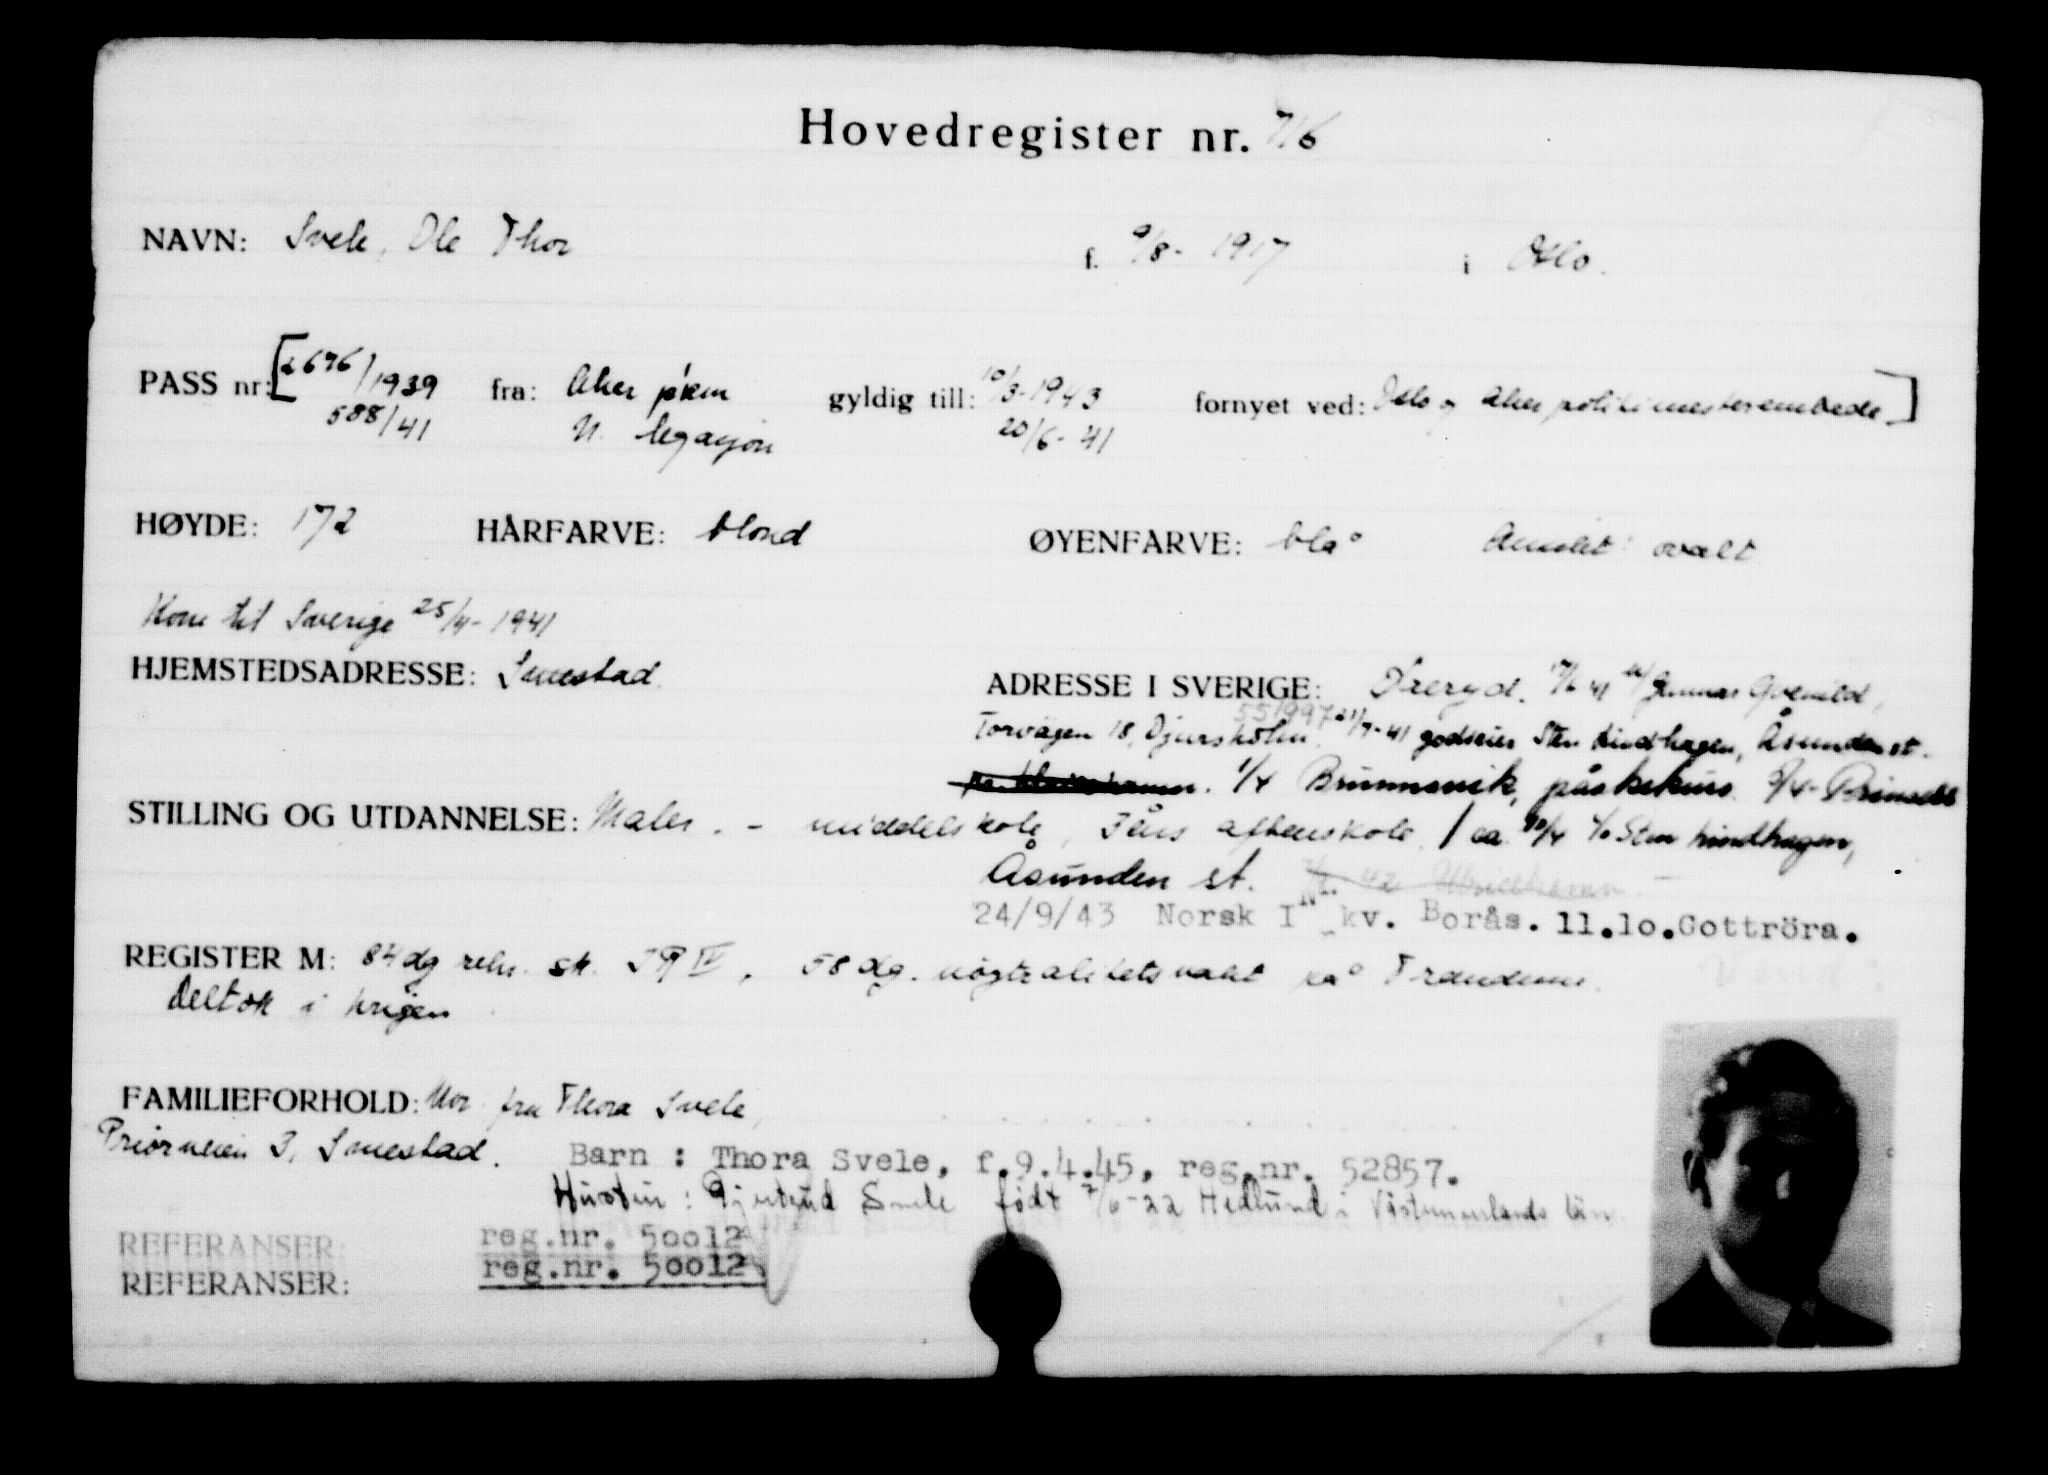 Hovedregister nr. 716
NAVN: Svele, Ole Thor f. 9/8- 1917 i Oslo.
PASS nr: [2676/1939 fra: Aker p.km gyldig till: 10/3-1943 fornyet ved: Oslo og Aker politimesterembede]
588/41 N. legasjon 20/6- 41
HØYDE: 172 HÅRFARVE: blond ØYENFARVE: blå Ansikt: ovalt
Kom til Sverige 25/4- 1941
HJEMSTEDSADRESSE: Smestad. ADRESSE I SVERIGE: Öreryd. 17/6 41 Gunnar
Torvägen 18, Djursholm. 551997 21/7-41 godseier Sten Lindhagen, Åsunden st.
1/4 Brunnsvik, påskekurs.
STILLING OG UTDANNELSE: Maler. - middelskole, 3 års aftenskole / ca 10/4 c/o Sten Lindhagen,
Åsunden st.
24/9/43 Norsk I kv. Borås. 11.10.Gottröra.
REGISTER M: 84 dg rekr. sk. IR IV, 58 dg. nøytralitetsvakt på Trandum.
Deltok i krigen
FAMILIEFORHOLD: Mor fru Thora Svele,
Priorveien 3, Smestad. Barn : Thora Svele, f.9.4.45, reg.nr. 52857.
Hustru : Gjertrud Svele født 7/6-22 Hedlund i Västmanlands län
REFERANSER: reg.nr. 50012
REFERANSER: reg.nr. 50012